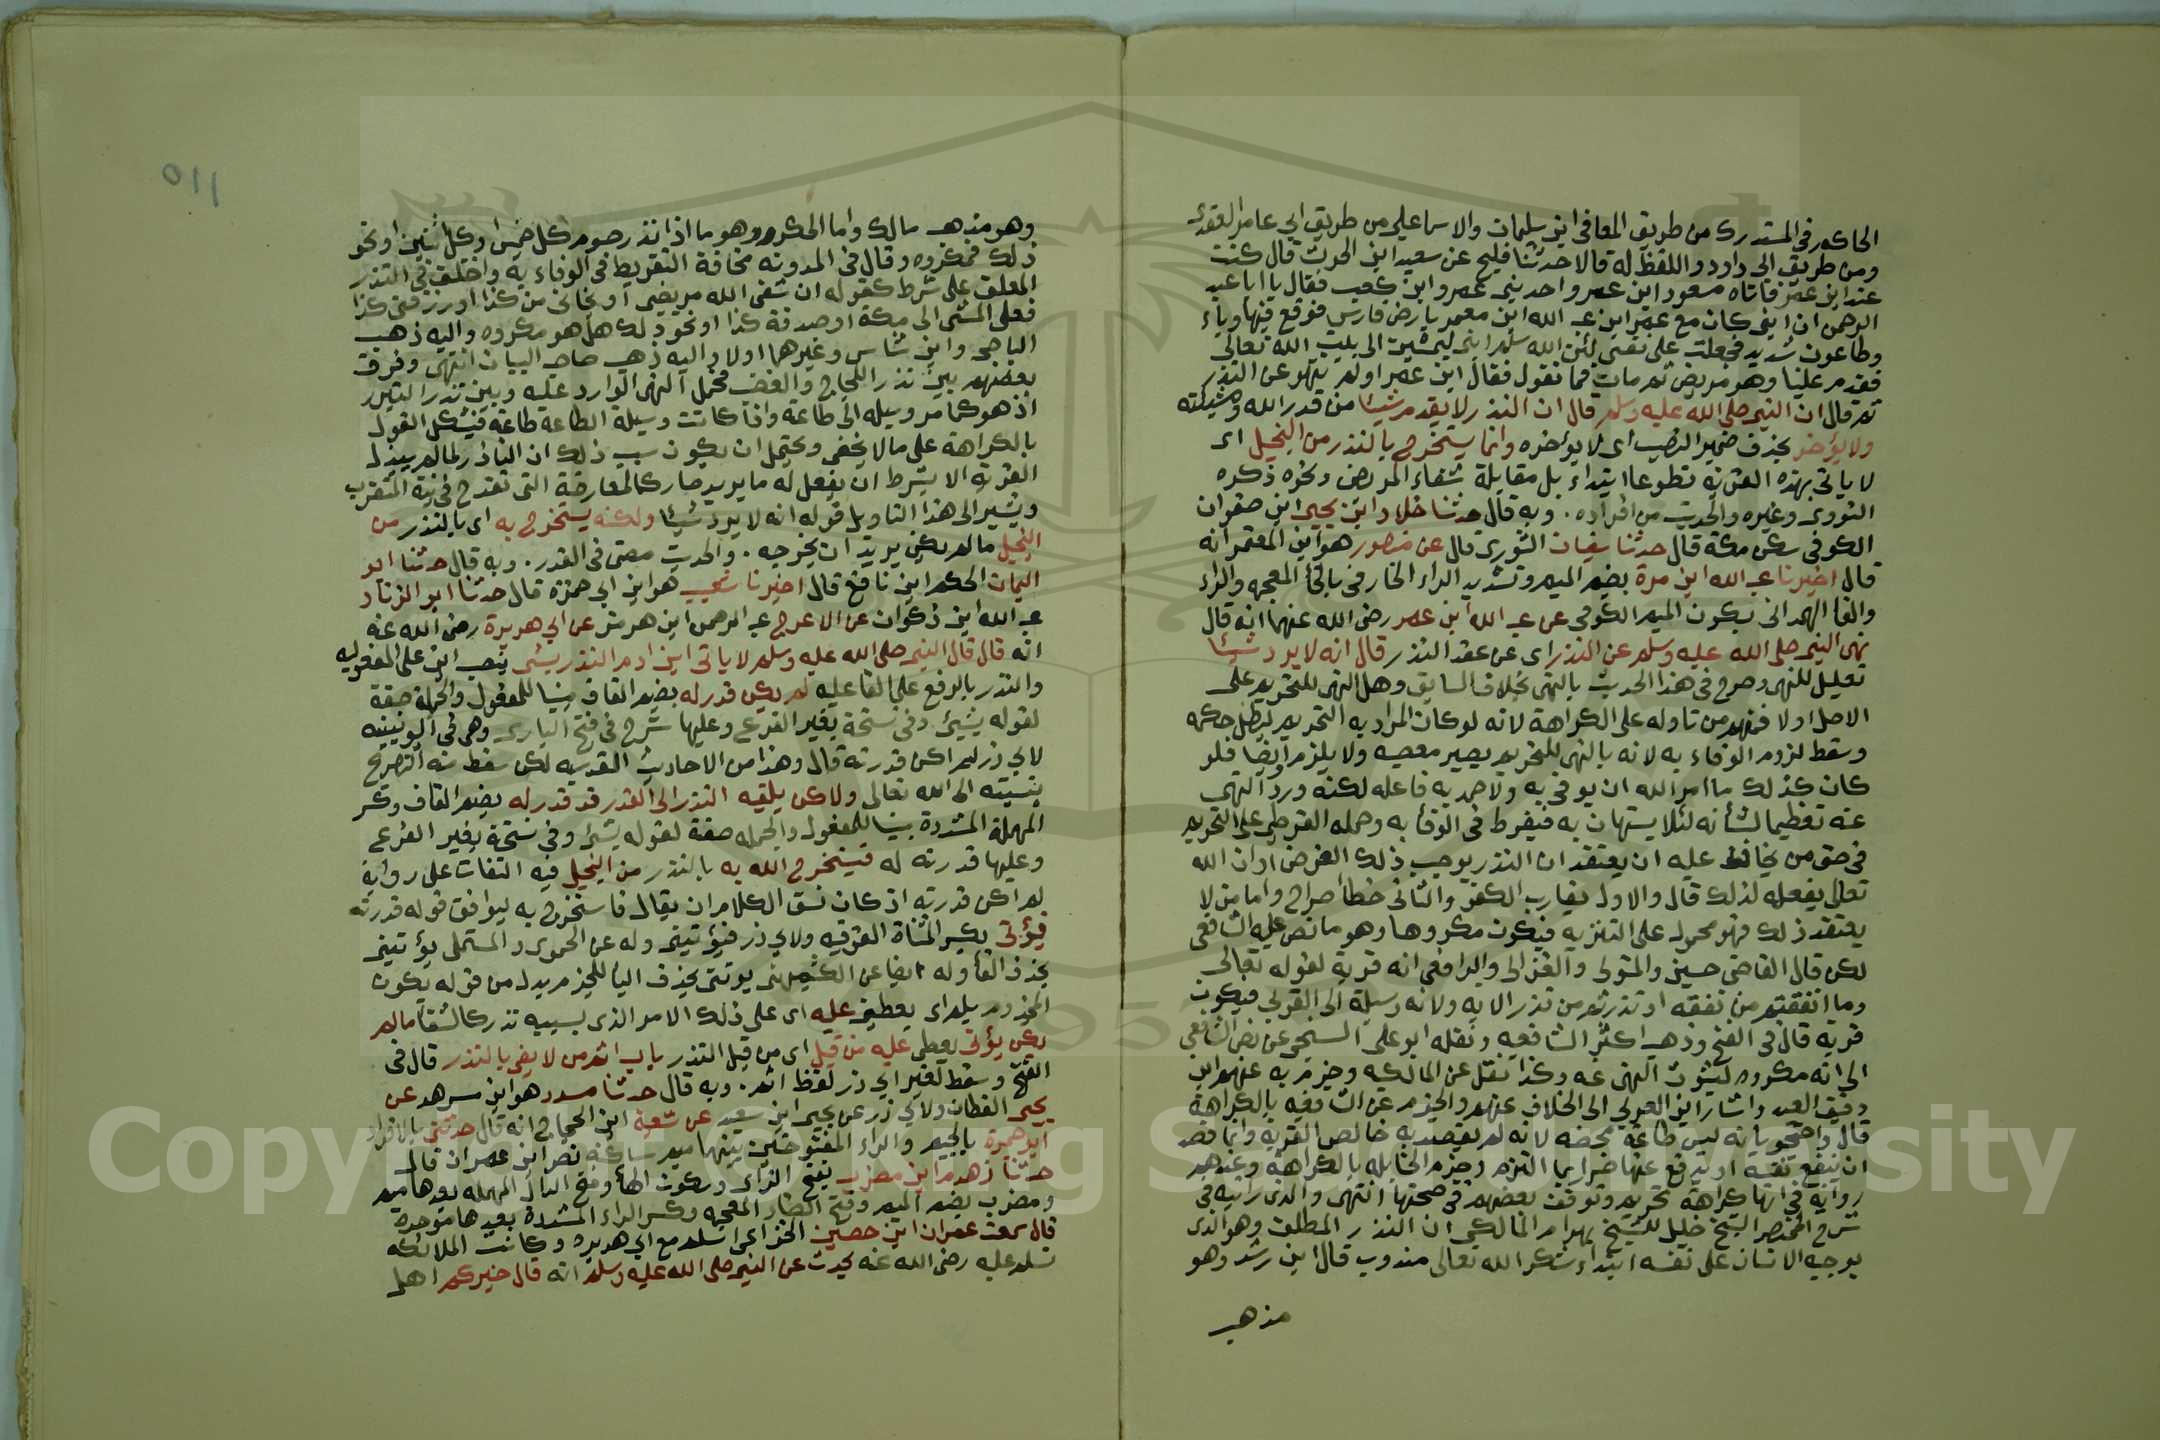 الحاكم في المستدرك من طريق المعافى ابن سليمان والاسماعيلي من طريق ابي عامر العقدي
ومن طريق ابي داود واللفظ له قالا حدثنا فليح عن سعيد ابن الحرث قال كنت
عند ابن عمر فاتاه مسعود ابن عمرو احد بني عمرو ابن كعب فقال يا ابا عبد
الرحمن ان ابني كان مع عمر ابن عبد الله ابن معمر بارض فارس فوقع فيها وباء
وطاعون شديد فجعلت على نفسي لئن الله سلم ابني ليمشين الى بيت الله تعالى
فقدم علينا وهو مريض ثم مات فما تقول فقال ابن عمر اولم ينهو عن النذر
ثم قال ان النبي صلى الله عليه وسلم قال ان النذر لا يقدم شيئا من قدر الله ومشيئته
ولا يؤخر بحذف ضمير النصب اى لا يؤخره وانما يستخرج بالنذر من البخيل اى
لا ياتي بهذه القربة تطوعا ابتداء بل مقابلة شفاء المريض ونحوه ذكره
النووى وغيره والحديث من افراده . وبه قال حدثنا خلاد ابن يحيى ابن صفوان
الكوفي سكن مكة قال حدثنا سفيان الثورى قال عن منصور هو ابن المعتمر انه
قال اخبرنا عبد الله ابن مرة بضم الميم وتشديد الراء الخارفي بالخاء المعجمه والراء
والفا الهمداني بسكون الميم الكوفي عن عبد الله ابن عمر رضى الله عنهما انه قال
نهى النبي صلى الله عليه وسلم عن النذر اى عن عقد النذر قال انه لا يرد شيئا
تعليل للنهى وصرح في هذا الحديث بالنهى بخلاف السابق وهل النهى للتحريم على
الاصل اولا فمنهم من تاوله على الكراهة لانه لو كان المراد به التحريم لبطل حكمه
وسقط لزوم الوفاء به لانه بالنهى للتحريم يصير معصيه ولا يلزم وايضا فلو
كان كذلك ما امر الله ان يوفى به ولا حمد به فاعله لكنه ورد النهى
عنه تعظيما لشأنه لئلا يستهان به فيفرط في الوفاء به وحمله القرطبي على التحريم
في حق من يخاف عليه ان يعتقد ان النذر يوجب ذلك الغرض او ان الله
تعالى يفعله لذلك قال والاول يقارب الكفر والثاني خطأ صراح واما من لا
يعتقد ذلك فهو محمول على التنزيه فيكون مكروها وهو ما نص عليه الشافعي
لكن قال القاضى حسين والمتولى والغزالى والرافعي انه قربة لقوله تعالى
وما انفقتم من نفقه او نذرتم من نذر الايه ولانه وسيلة الى القربى فيكون
قربة قال في الفتح وذهب اكثر الشافعيه ونقله ابو على السنجى عن نص الشافعي
الى انه مكروه لثبوت النهى عنه وكذا نقل عن المالكيه وجزم به عنهم ابن
دقيق العيد واشار ابن العربي الى الخلاف عنهم والجزم عن الشافعيه بالكراهة
قال واحتجو بانه ليس طاعة محضه لانه لم يقصد به خالص القربة وانما قصد
ان ينفع نفسه او يدفع عنها ضررا بما التزم وجزم الحنابله بالكراهة وعندهم
رواية في انها كراهة تحريم وتوقف بعضهم في صحتها انتهى والذى رايته في
شرح المختصر الشيخ خليل للشيخ بهرام المالكي ان النذر المطلق وهو الذى
يوجبه الانسان على نفسه ابتداء شكرا لله تعالى مندوب قال ابن رشد وهو
مذهب
٥١١
وهو مذهب مالك واما المكرر وهو ما اذا نذر صوم كل خميس او كل اثنين او نحو
ذلك فمكروه وقال في المدونه مخافة التفريط في الوفاء به واختلف في النذر
المعلق على شرط كقوله ان شفى الله مريضي او نجانى من كذا او رزقنى كذا
فعلى المشى الى مكة او صدقة كذا او نحو ذلك هل هو مكروه واليه ذهب
الباجى وابن شاس وغيرهما اولا واليه ذهب صاحب البيان انتهى وفرق
بعضهم بين نذر اللجاج والغضب فحمل النهى الوارد عليه وبين نذر التبرر
اذ هو كما مر وسيله الى طاعة واذا كانت وسيلة الطاعة طاعة فيشكل القول
بالكراهة على ما لا يخفى ويحتمل ان يكون سبب ذلك ان الناذر لما لم يبذل
القربة الا بشرط ان يفعل له ما يريد صار كالمعارضة التى تقدح في نية المتقرب
ويشير الى هذا التاويل قوله انه لا يرد شيئا ولكنه يستخرج به اى بالنذر من
البخيل ما لم يكن يريد ان يخرجه . والحديث مضى في القدر . وبه قال حدثنا ابو
اليمان الحكم ابن نافع قال اخبرنا شعيب هو ابن ابي حمزة قال حدثنا ابو الزناد
عبد الله ابن ذكوان عن الاعرج عبد الرحمن ابن هرمز عن ابي هريرة رضى الله عنه
انه قال قال النبي صلى الله عليه وسلم لا ياتى ابن ادم النذر بشئ بنصب ابن على المفعوليه
والنذر بالرفع على الفاعليه لم يكن قدر له بضم القاف مبنيا للمفعول والجملة صفة
لقوله بشئ وفي نسخة بغير الفرع وعليها شرح في فتح البارى وهى في اليونينيه
لابي ذر لم اكن قدرته قال وهذا من الاحاديث القدسيه لكن سقط منه التصريح
بنسبته الى الله تعالى ولاكن يلقيه النذر الى القدر قد قدر له بضم القاف وكسر
المهملة المشددة مبنيا للمفعول والجمله صفة لقوله بشئ وفي نسخة بغير الفرع
وعليها قدرته له فيستخرج الله به بالنذر من البخيل فيه التفات على رواية
لم اكن قدرته اذ كان نسق الكلام ان يقال فاستخرج به ليوافق قوله قدرته
فيؤتى بكسر المثناة الفوقيه ولابي ذر فيؤتيني وله عن الحموى والمستملى يؤتيني
بحذف الفاء وله ايضا عن الكشميهني يوتني بحذف اليا للجزم بدل من قوله يكون
المجزوم بلم اى يعطيني عليه اى على ذلك الامر الذى بسببه نذر كالشفا ما لم
يكن يؤتى يعطى عليه من قبل اى من قبل النذر باب اثم من لا يفي بالنذر قال في
الفتح وسقط لغير ابي ذر لفظ اثم . وبه قال حدثنا مسدد هو ابن مسرهد عن
يحيى القطان ولابي ذر عن يحيى ابن سعيد عن شعبة ابن الحجاج انه قال حدثني بالافراد
ابو جمرة بالجيم والراء المفتوحتين بينهما ميم ساكنه نصر ابن عمران قال
حدثنا زهدم ابن مضرب بفتح الزاى وسكون الهاء وفتح الدال المهمله بعدها ميم
ومضرب بضم الميم وفتح الضاد المعجمه وكسر الراء المشددة بعدها موحدة
قال سمعت عمران ابن حصين الخزاعى اسلم مع ابي هريره وكانت الملائكه
تسلم عليه رضى الله عنه يحدث عن النبي صلى الله عليه وسلم انه قال خيركم اهل